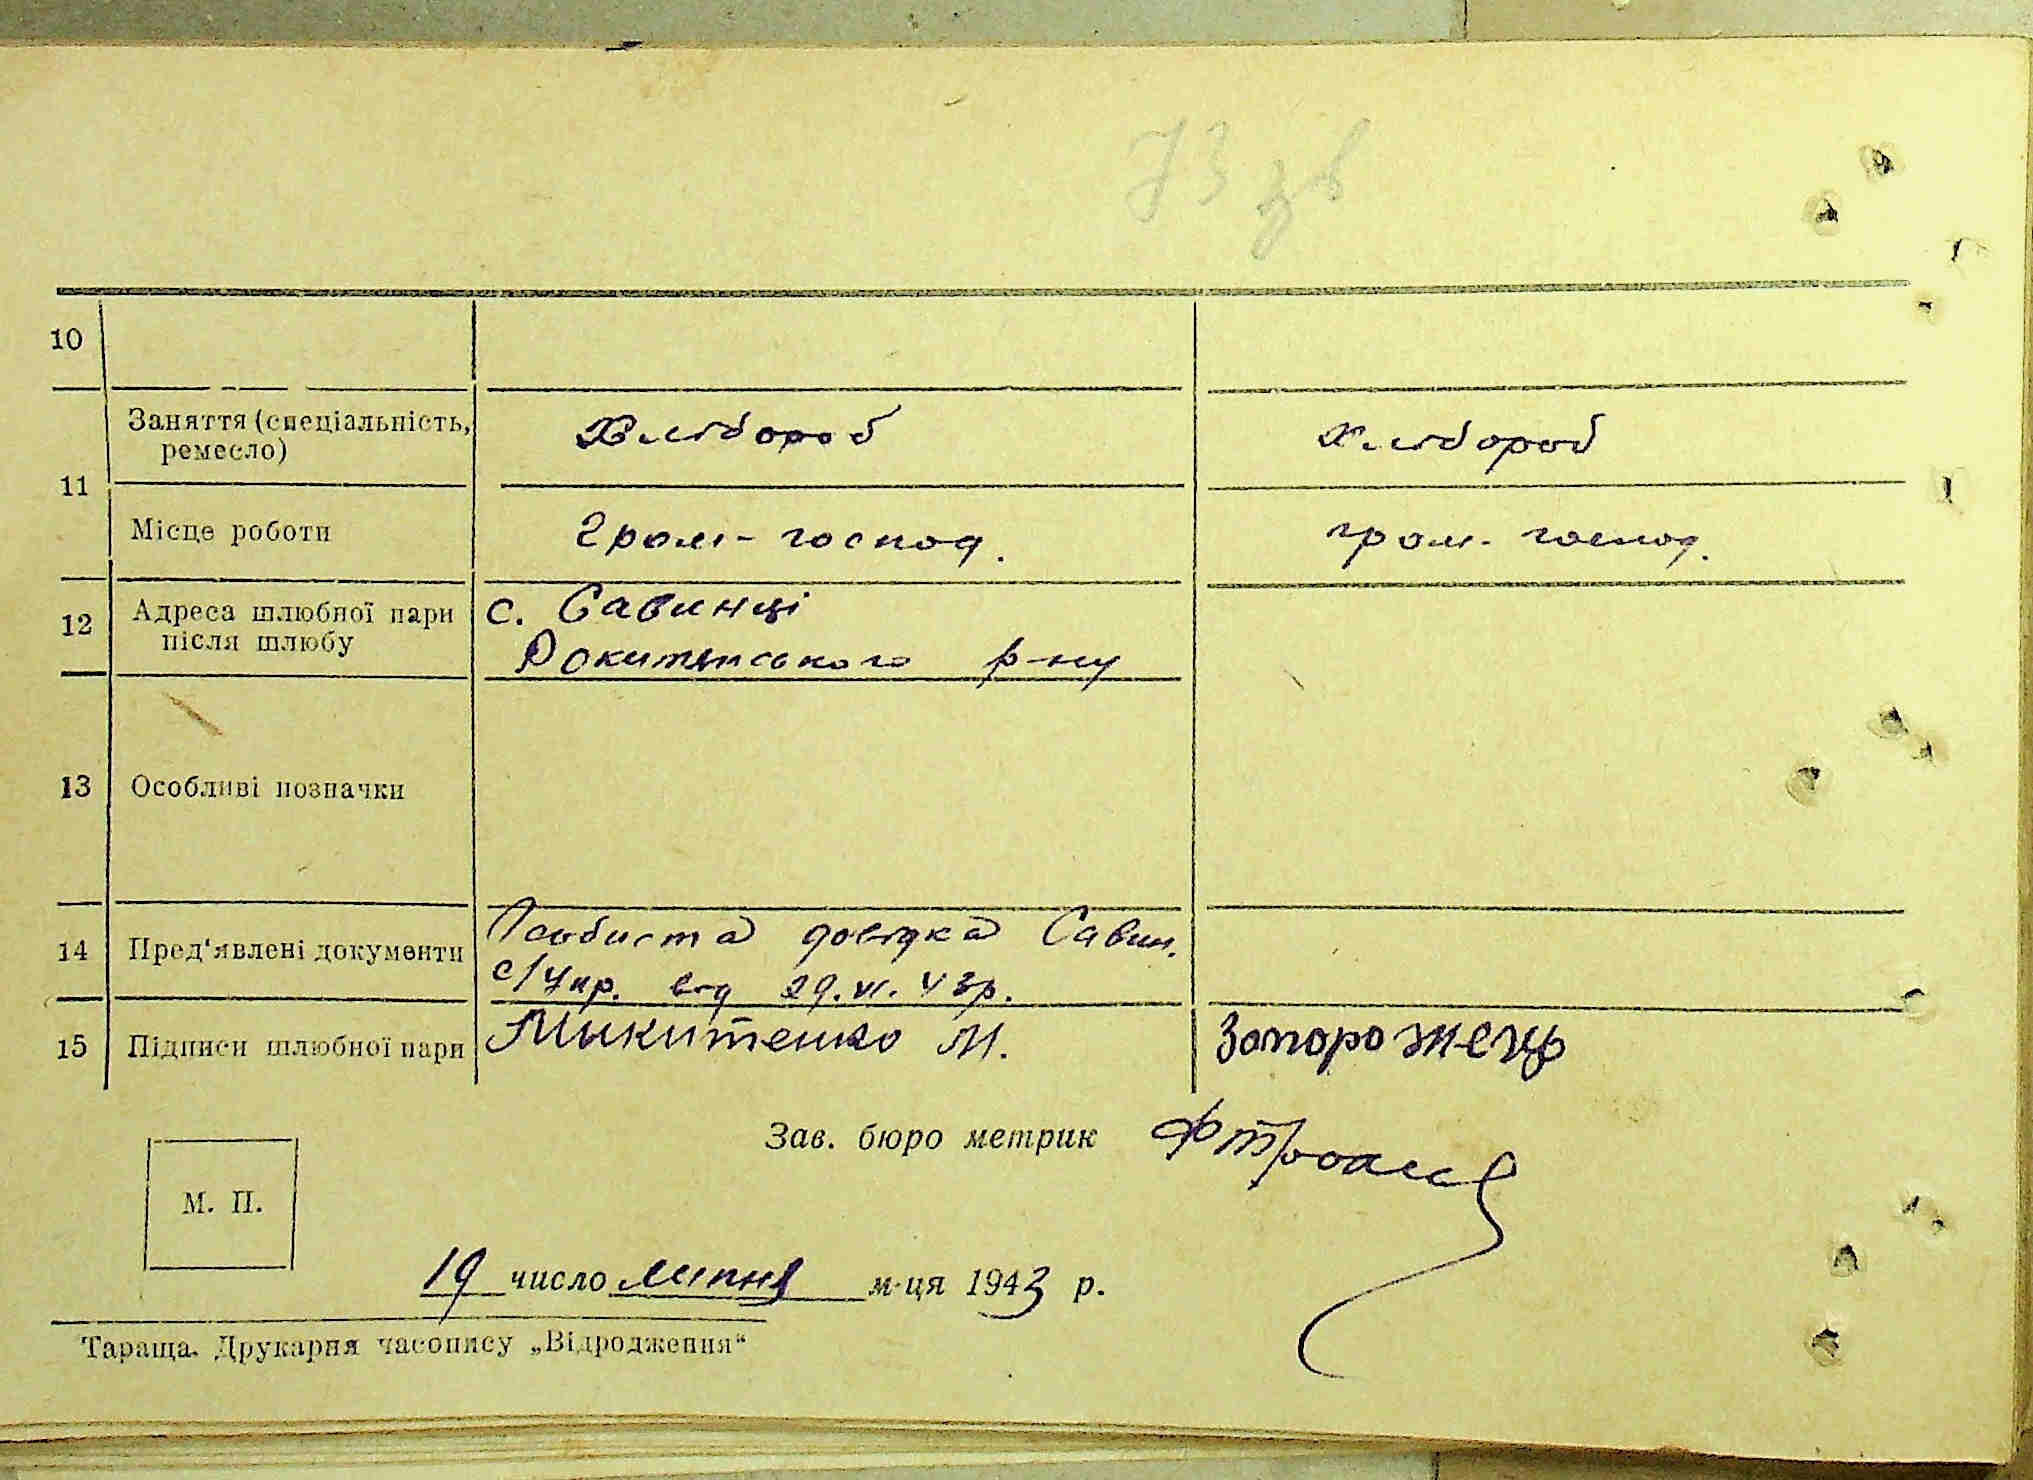 73 зв
10
Заняття (спеціальність, ремесло) Хлібороб Хлібороб
11
Місце роботи Гром-господ. гром-господ.
12 Адреса шлюбної пари після шлюбу с. Савинці
Рокитянського р-ну
13 Особливі позначки
14 Пред'явлені документи Особиста довідка Савин.
с/Упр. від 29.VI.43р.
15 Підписи шлюбної пари Микитенко М. Запорожець
Зав. бюро метрик
М. П.
19 число липня м-ця 1943 р.
Тараща. Друкарня часопису „Відродження“